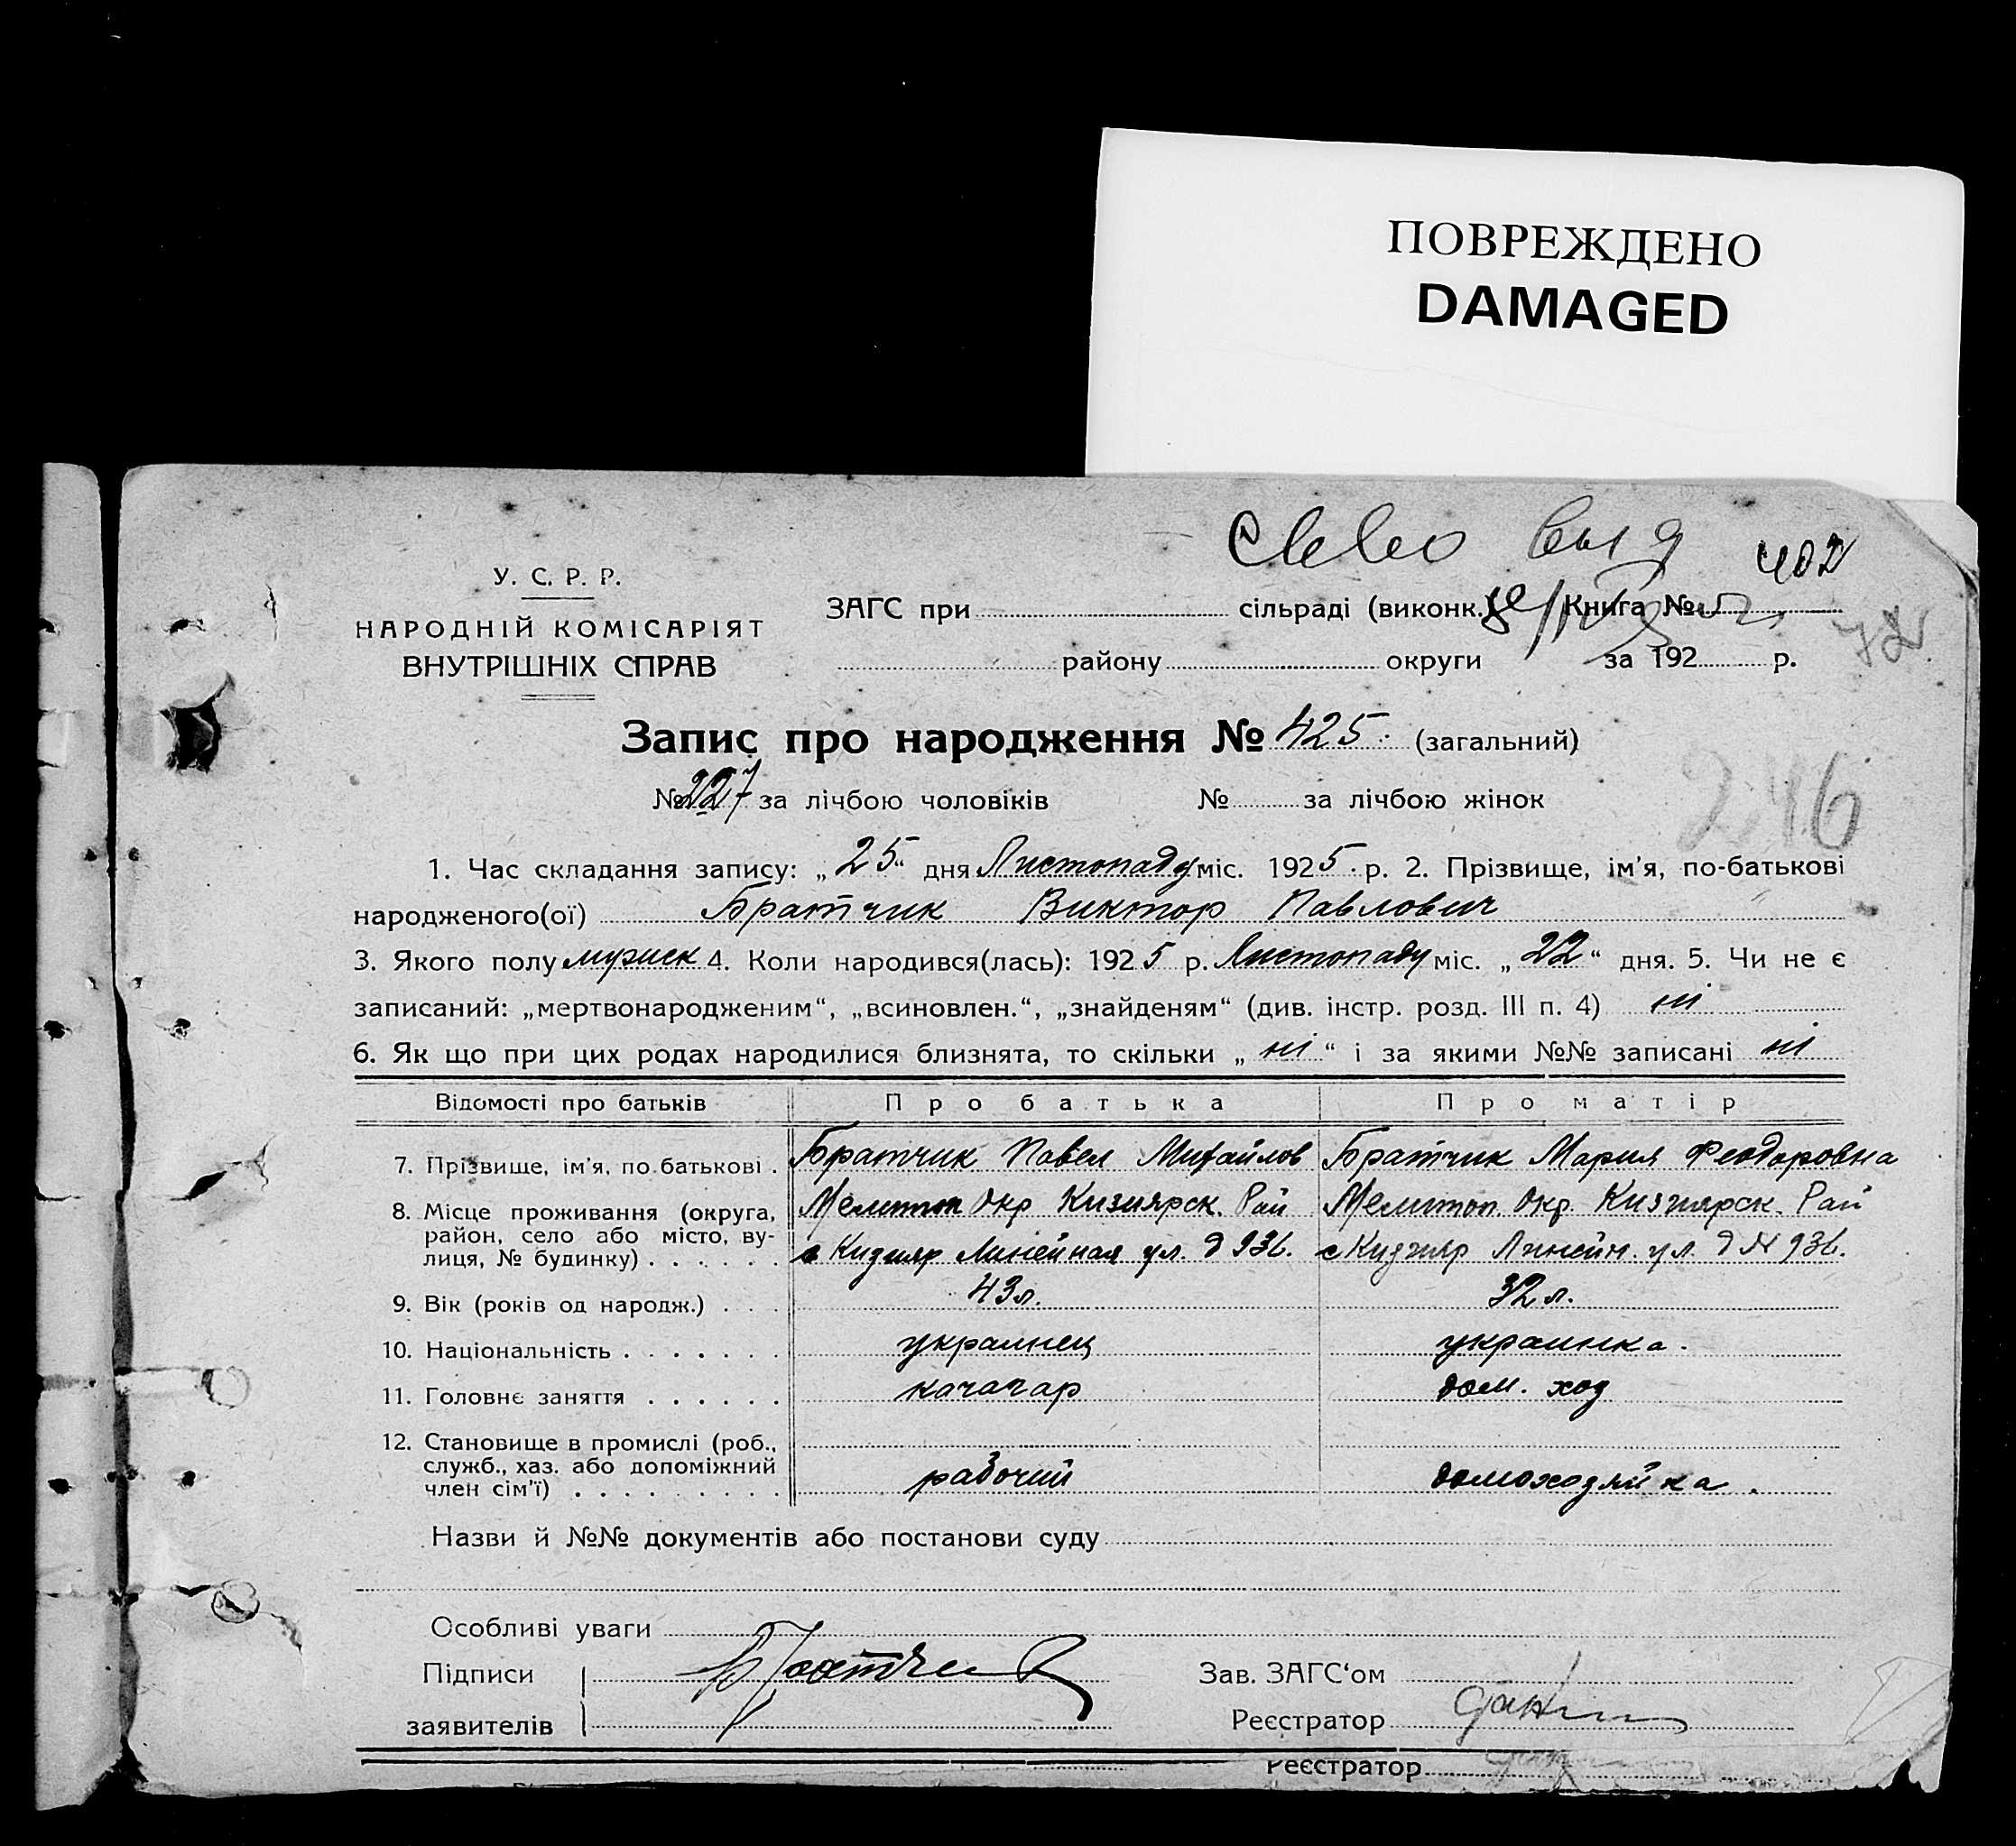 ПОВРЕЖДЕНО
DAMAGED
402
У. С. Р. Р.
НАРОДНІЙ КОМІСАРІЯТ
ВНУТРІШНІХ СПРАВ
ЗАГС при сільраді (виконк.) Книга №
району округи за 192 р.
Запис про народження № 425. (загальний)
№ 227 за лічбою чоловіків № за лічбою жінок
246
1. Час складання запису: „25“ дня Листопаду міс. 1925. р. 2. Прізвище, ім'я, по-батькові
народженого(ої) Братчик Виктор Павлович
3. Якого полу мужск 4. Коли народився(лась): 1925 р. Листопаду міс. „22“ дня. 5. Чи не є
записаний: „мертвонародженим“, „всиновлен.“, „знайденям“ (див. інстр. розд. III п. 4) ні
6. Як що при цих родах народилися близнята, то скільки „ні“ і за якими №№ записані ні
Відомості про батьків Про батька Про матір
7. Прізвище, ім'я, по батькові . Братчик Павел Михайлов Братчик Мария Феодоровна
8. Місце проживання (округа, Мелитоп Окр Кизиярск. Рай Мелитоп. Окр. Кизиярск. Рай
район, село або місто, ву-
лиця, № будинку) . . . . . . с Кизияр Линейная ул. д 936. с Кизияр Линейн. ул. д № 936.
9. Вік (років од народж.) . . . 43 л. 32 л.
10. Національність . . . . . . . украинец украинка.
11. Головнє заняття . . . . . . качагар дом. хоз
12. Становище в промислі (роб.,
служб., хаз. або допоміжний
член сім'ї) . . . . . . . . . рабочий домохозяйка.
Назви й №№ документів або постанови суду
Особливі уваги
Підписи Братчик Зав. ЗАГС'ом
заявителів Реєстратор
Реєстратор